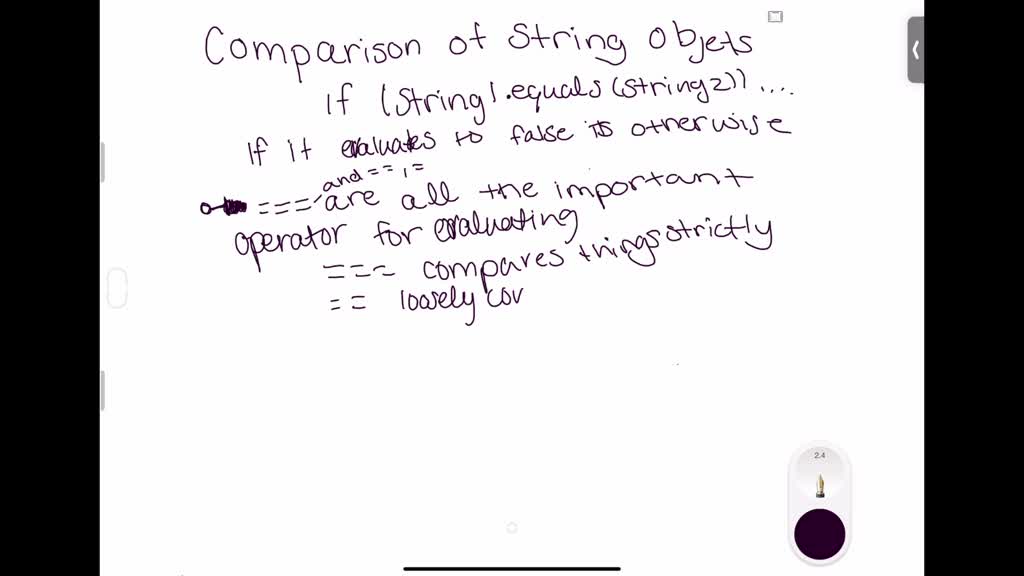 Comparison of String Objets
If (String1.equals(String2)) ....
If it evaluates to false is otherwise
and ==, =
=== are all the important
operator for evaluating
=== compares things strictly
== loosely
2.4